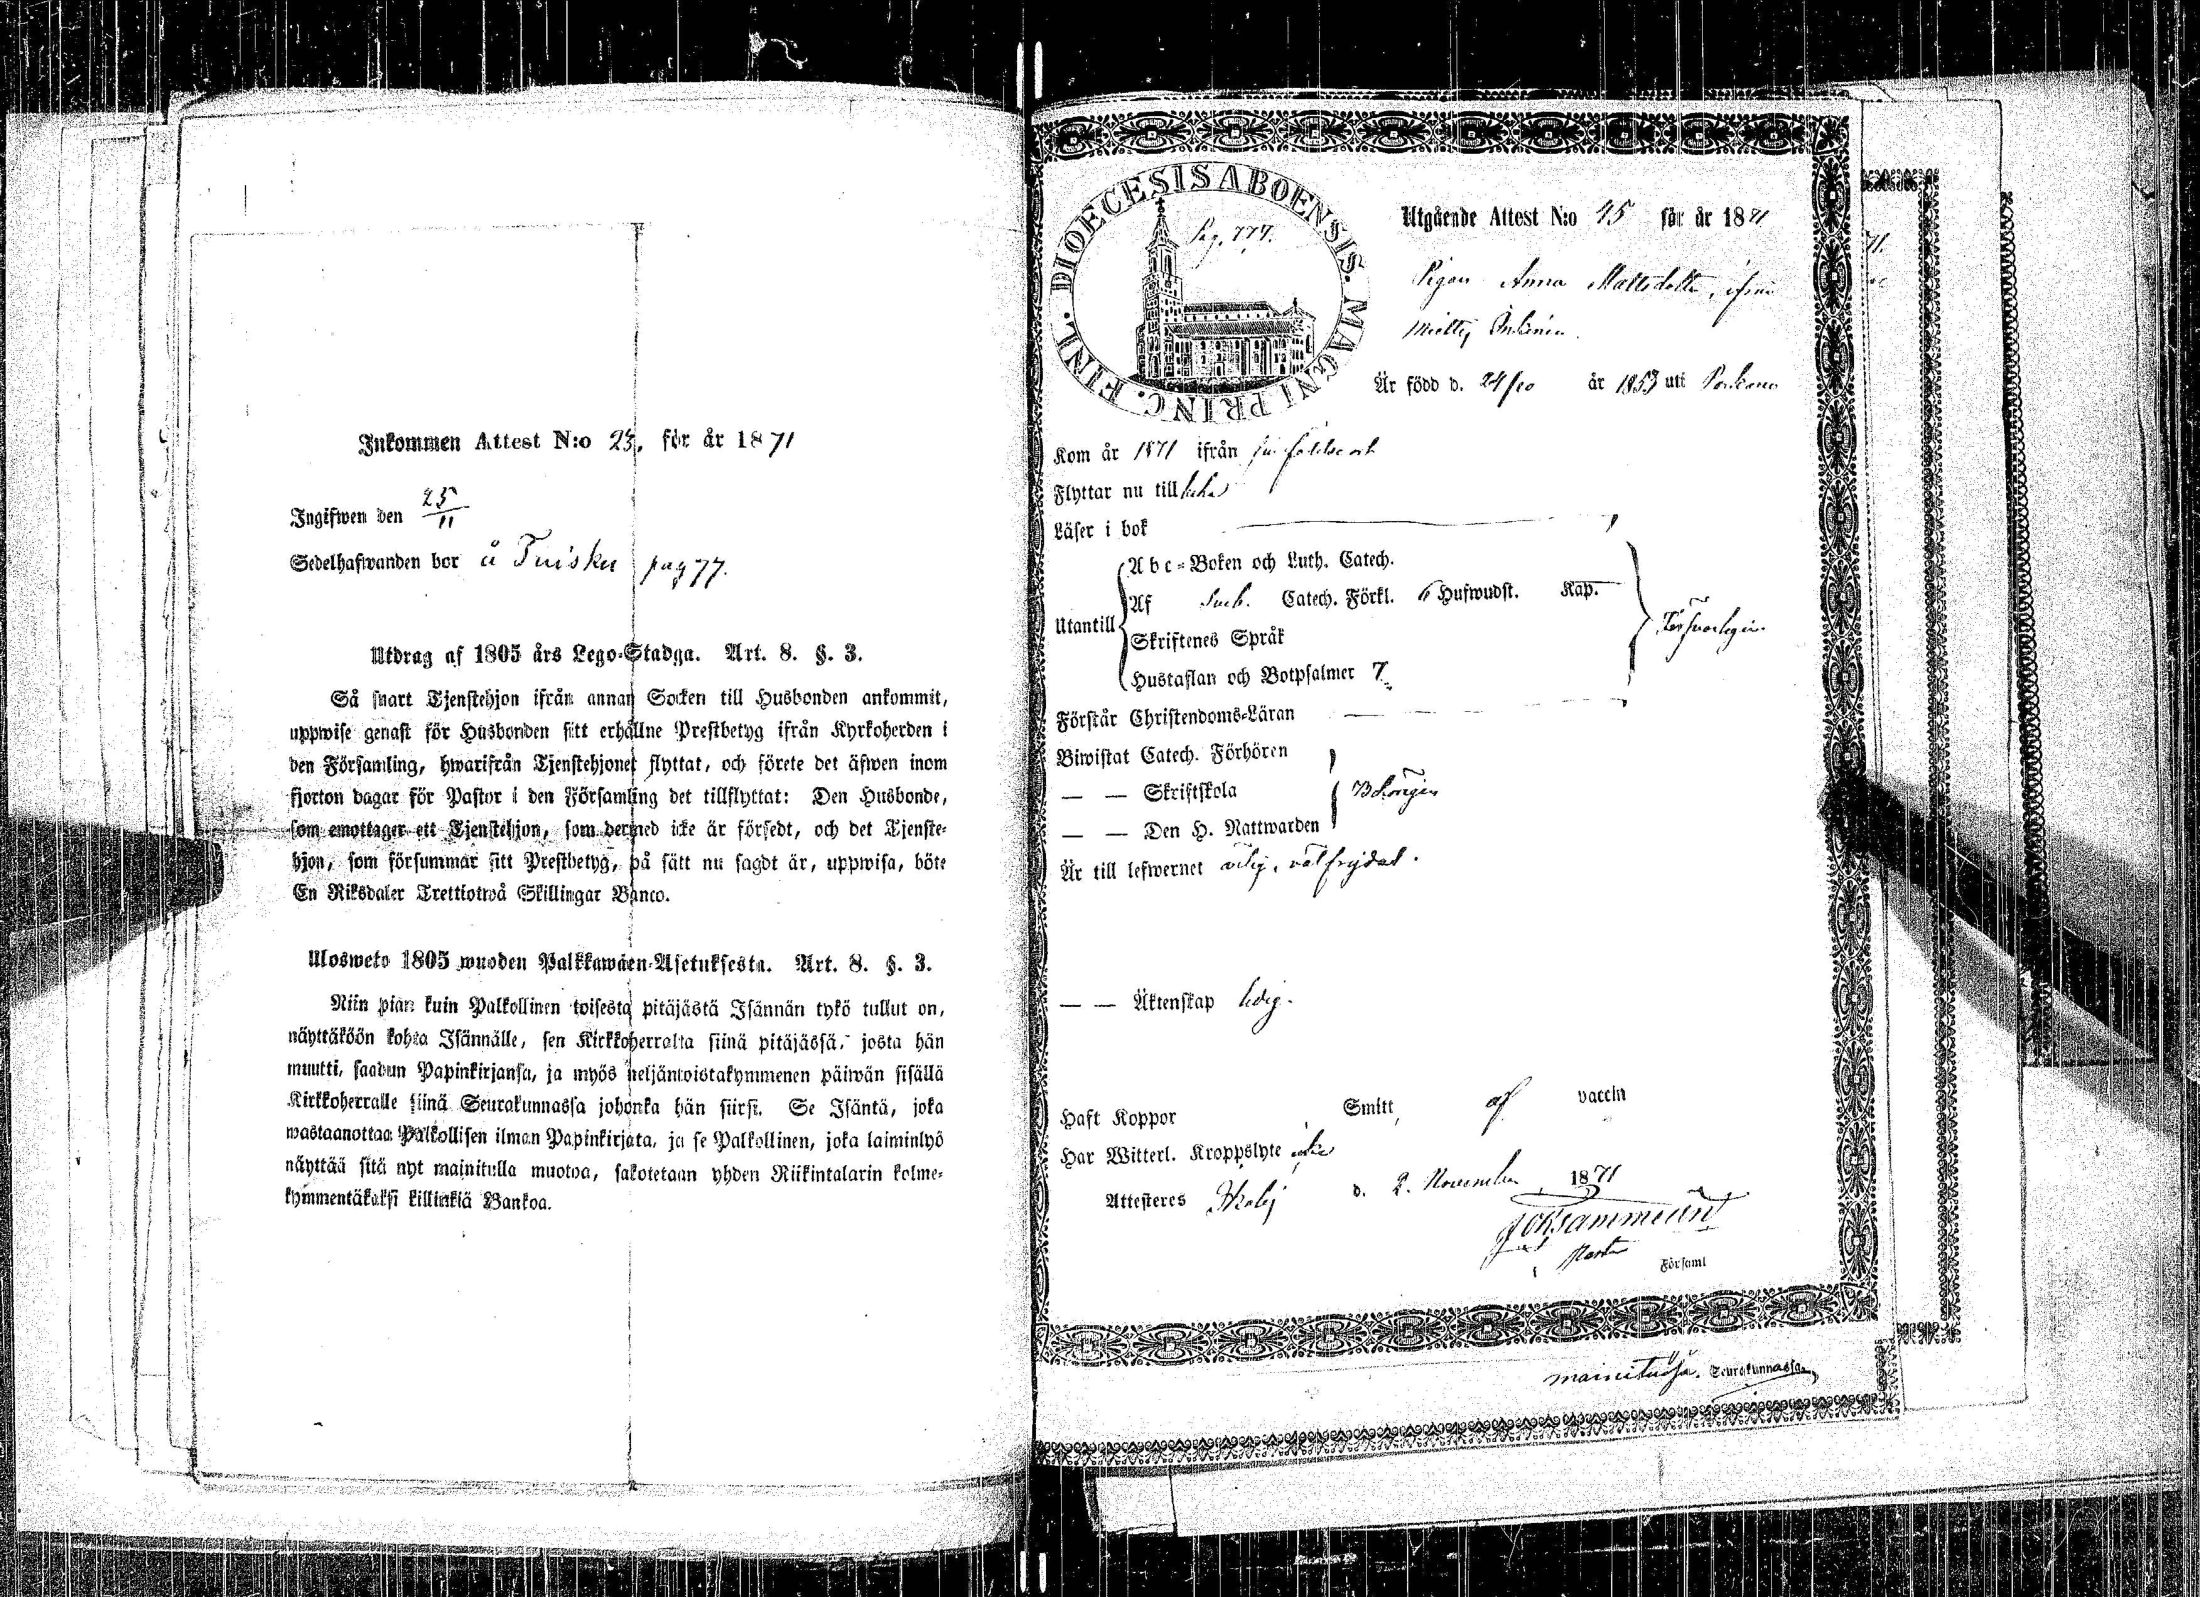 Inkommen Attest N:o 23. för år 1871
Ingifwen den 25/11
Sedelhafwanden bor å Tuisku pag 77.
Utdrag af 1805 års Lego-Stadga. Art. 8. §. 3.
Så snart Tjenstehjon ifrån annan Socken till Husbonden ankommit,
uppwise genast för Husbonden sitt erhållne Prestbetyg ifrån Kyrkoherden i
den Församling, hwarifrån Tjenstehjonet flyttat, och förete det äfwen inom
fjorton dagar för Pastor i den Församling det tillflyttat: Den Husbonde,
som emottager ett Tjenstehjon, som dermed icke är försedt, och det Tjenste-
hjon, som försummar sitt Prestbetyg, på sätt nu sagdt är, uppwisa, böte
En Riksdaler Trettiotwå Skillingar Banco.
Ulosweto 1805 wuoden Palkkawäen-Asetuksesta. Art. 8. §. 3.
Niin pian kuin Palkollinen toisesta pitäjästä Isännän tykö tullut on,
näyttäköön kohta Isännälle, sen Kirkkoherralta siinä pitäjässä, josta hän
muutti, saadun Papinkirjansa, ja myös neljäntoistakymmenen päiwän sisällä
Kirkkoherralle siinä Seurakunnassa johonka hän siirsi. Se Isäntä, joka
wastaanottaa Palkollisen ilman Papinkirjata, ja se Palkollinen, joka laiminlyö
näyttää sitä nyt mainitulla muotoa, sakotetaan yhden Riikintalarin kolme-
kymmentäkaksi killinkiä Bankoa.
DIOECESIS ABOENSIS. MAGNI PRINC. FINL.
Pag. 777.
Utgående Attest N:o 45 för år 1871
Pigan Anna Mattsdotter, ifrån
Mietty
Är född d. 24/10 år 1853 uti Parkano
Kom år 1871 ifrån sin födelseort
Flyttar nu till
Läser i bok
Utantill
Abc-Boken och Luth. Catech.
Af Sveb. Catech. Förkl. 6 Hufwudst. Kap.
Skriftenes Språk
Hustaflan och Botpsalmer 7
Försvarligen
Förstår Christendoms-Läran
Biwistat Catech. Förhören
— — Skriftskola
— — Den H. Nattwarden
Behörigen
Är till lefwernet ärlig, välfrejdad.
— — Äktenskap ledig.
Haft Koppor Smitt, af vaccin
Har Witterl. Kroppslyte icke
Attesteres d. 2. November 1871
Pastor
i Församl
mainitussa Seurakunnassa,